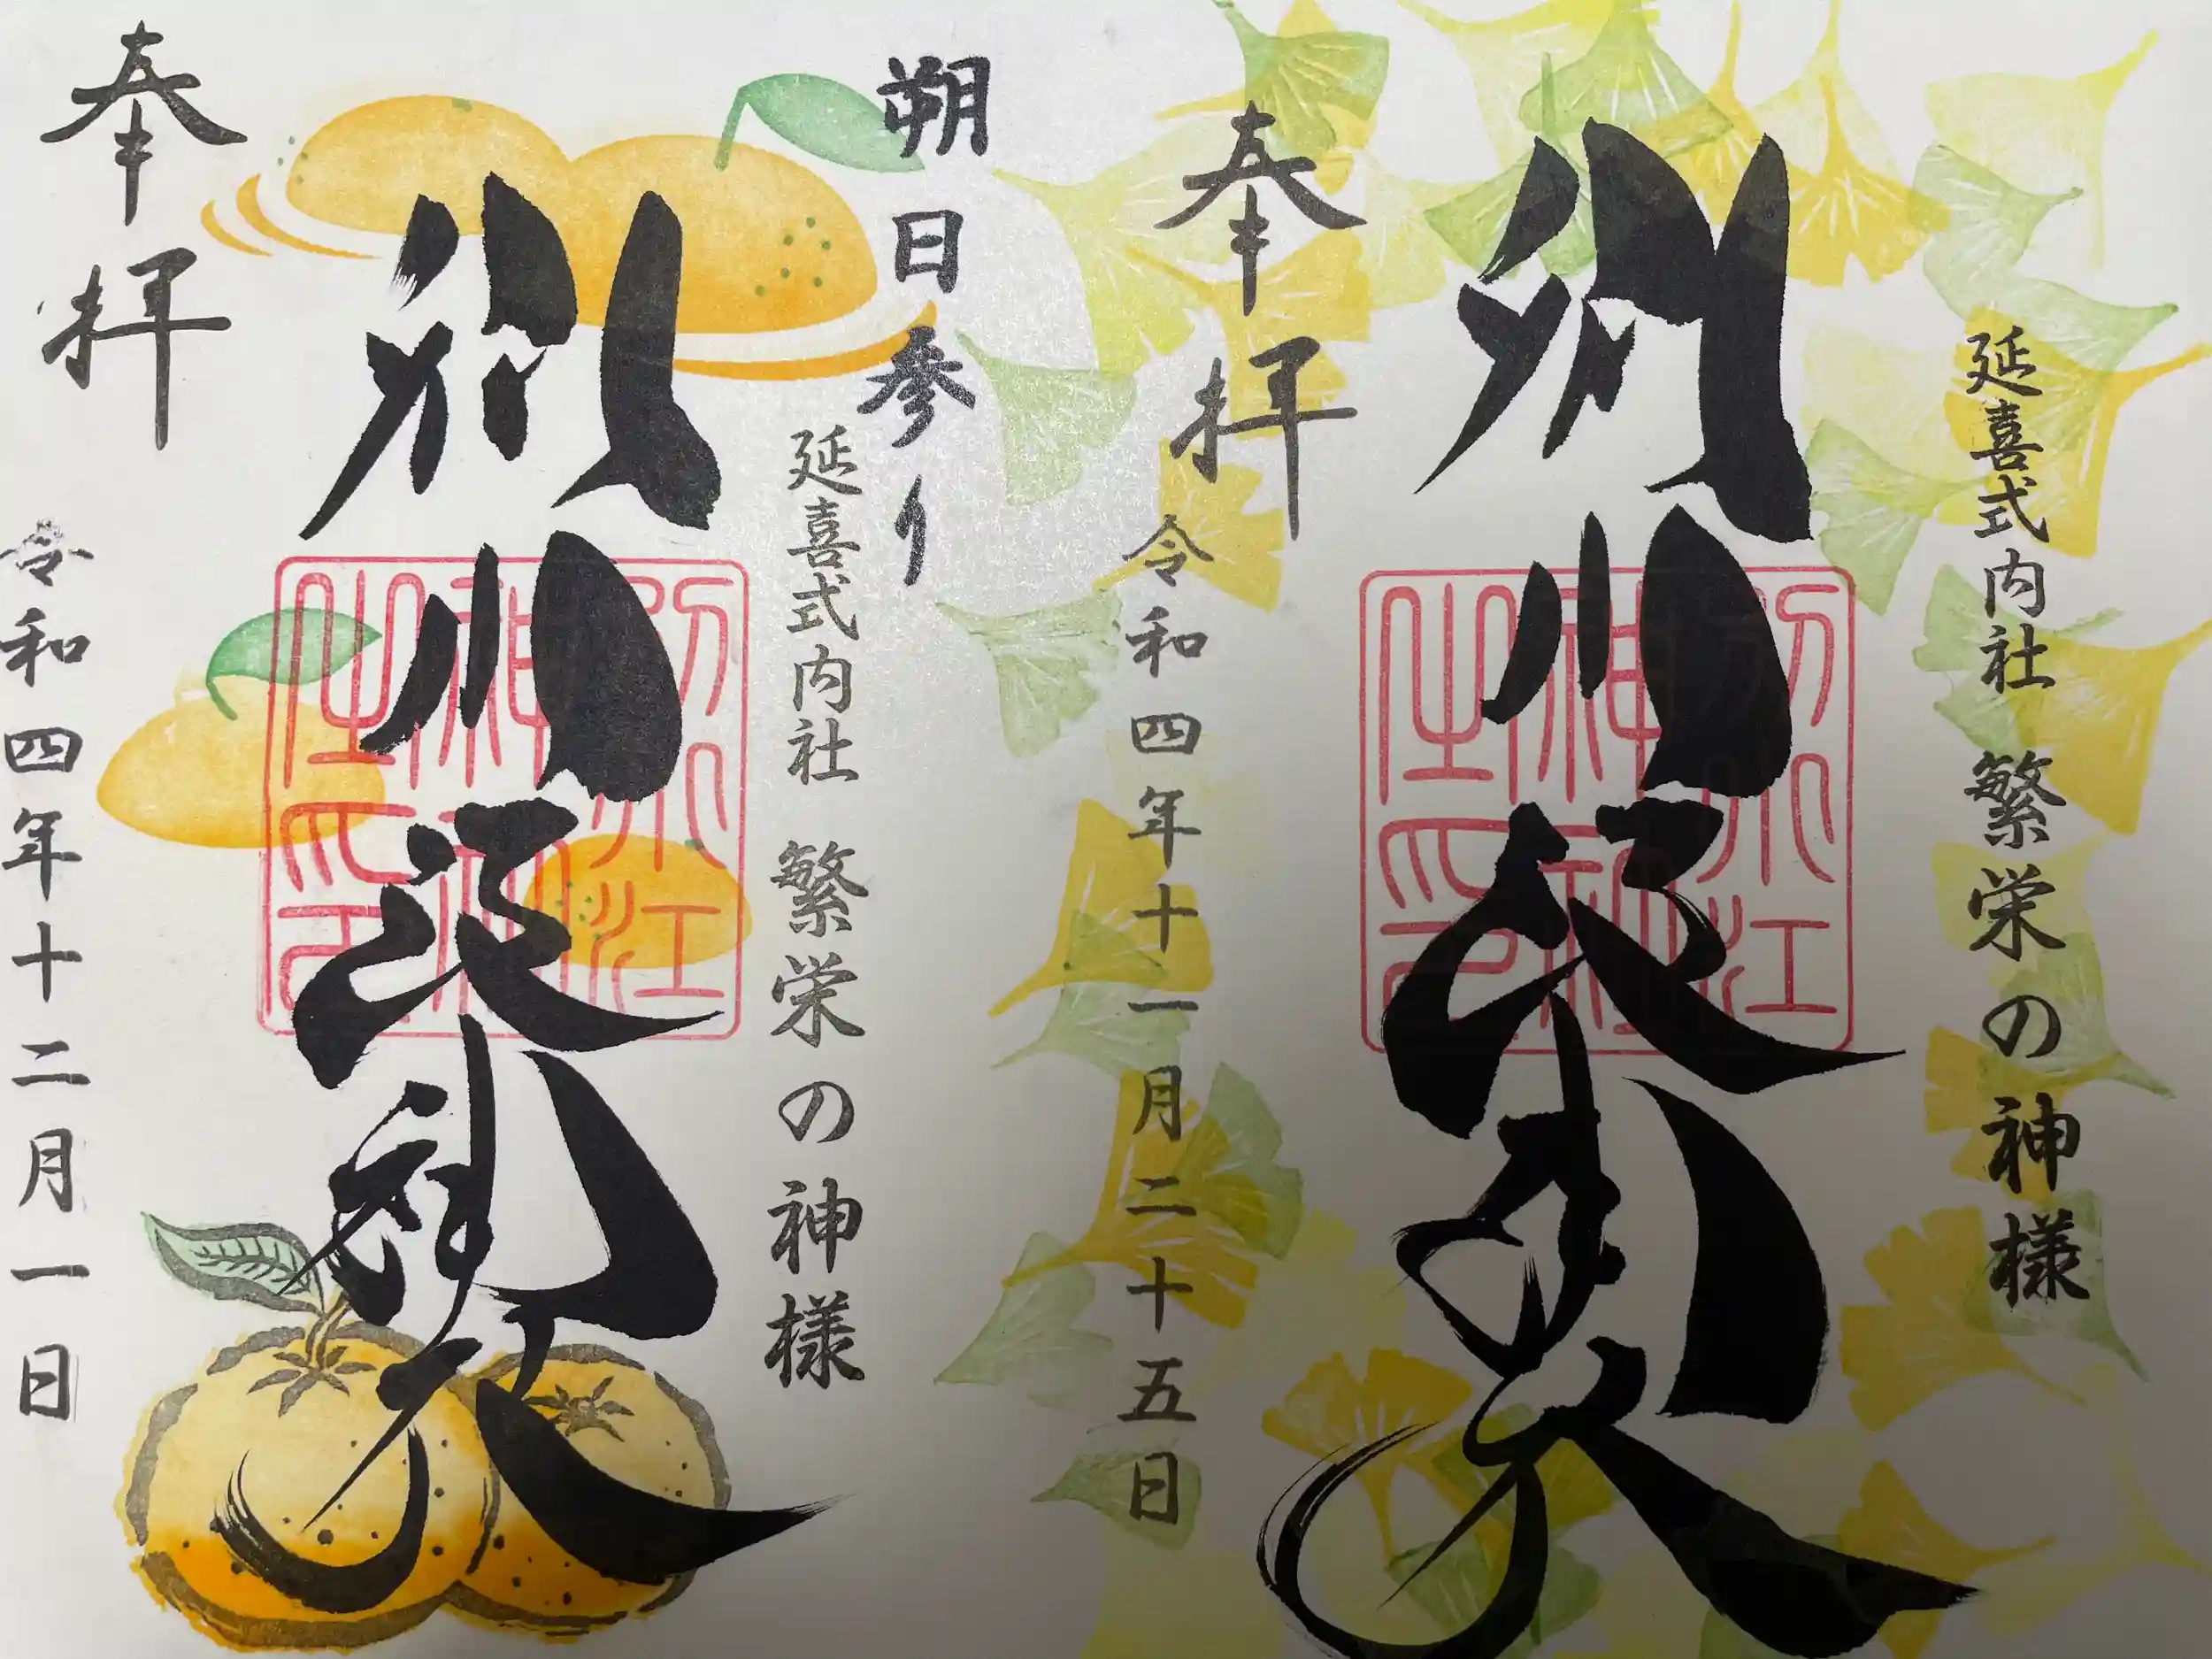 延喜式内社 繁栄の神様
別小江神社
別小江
神社
之印
奉拝
令和四年十一月二十五日
朔日参り
延喜式内社 繁栄の神様
別小江神社
別小江
神社
之印
奉拝
令和四年十二月一日